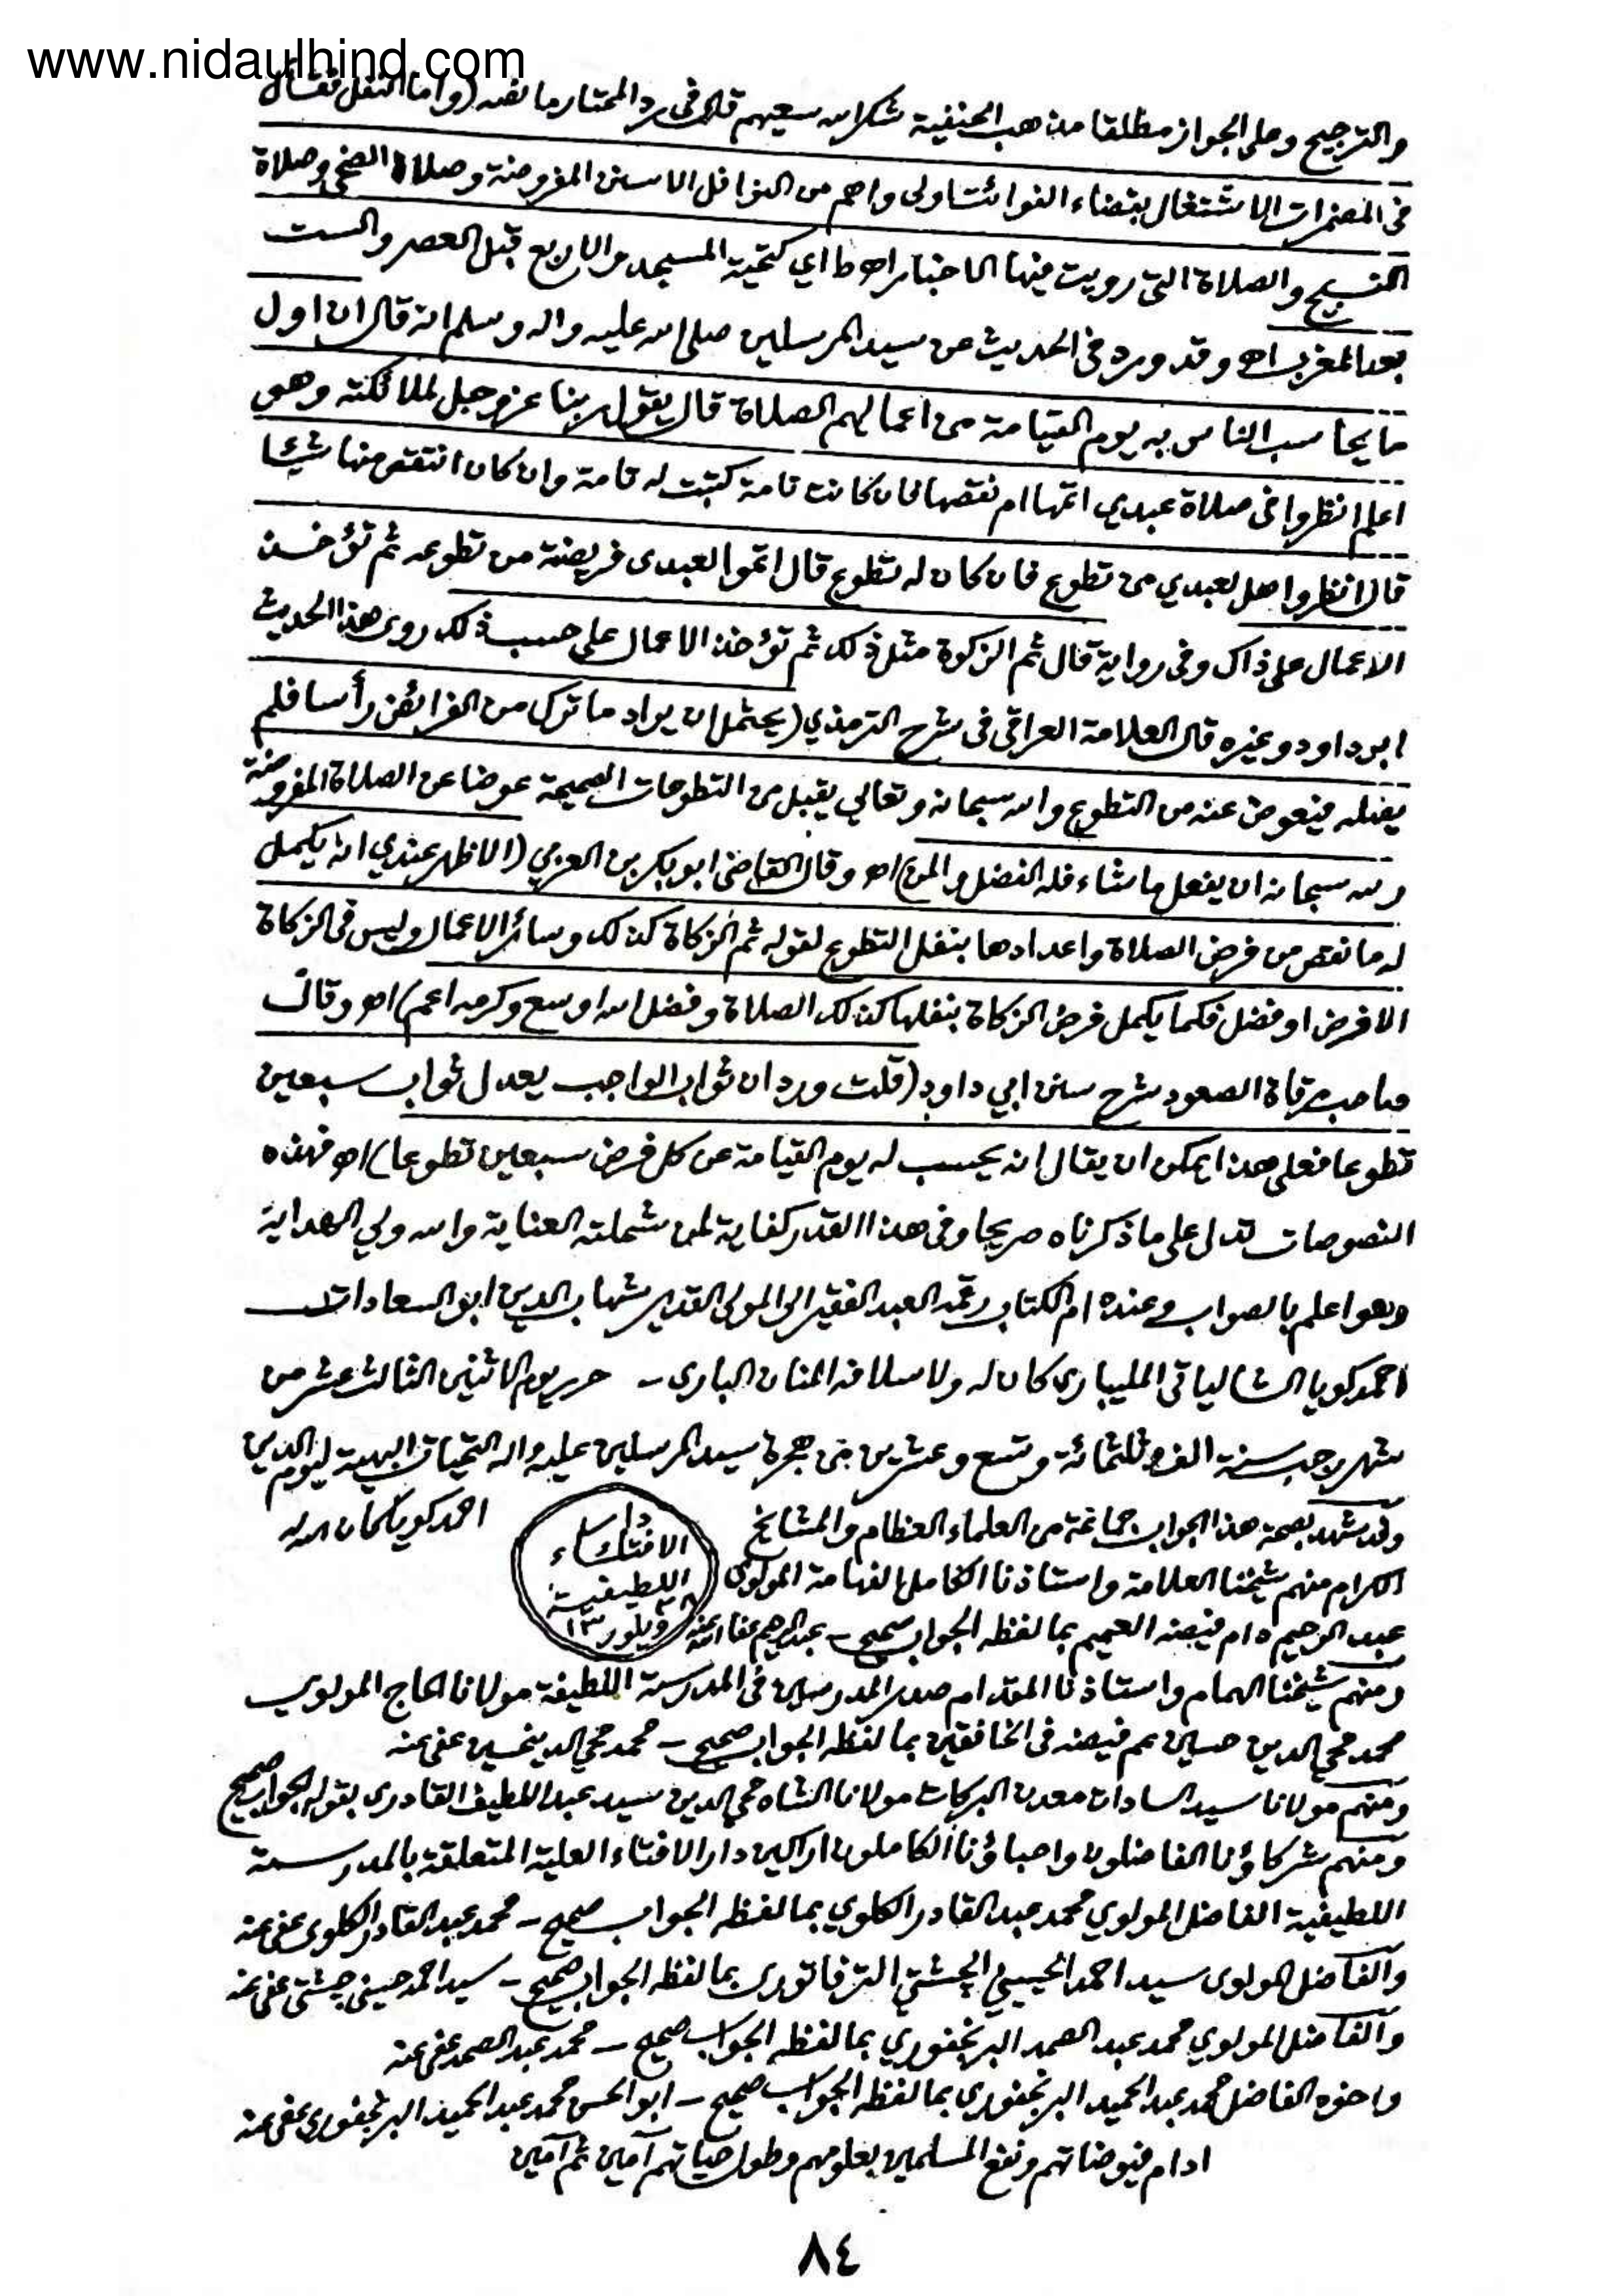 www.nidaulhind.com
والترجيح وعلى الجواز مطلقا مذهب الحنفية شكر الله سعيهم قال فى رد المحتار ما نصه (واما النفل فقال
فى المضمرات الاشتغال بقضاء الفوائت اولى واهم من النوافل الا سنن المفروضة وصلاة الضحى وصلاة
التسبيح والصلاة التى رويت فيها الاخبار اه ط اي كتحية المسجد والاربع قبل العصر والست
بعد المغرب اه وقد ورد فى الحديث عن سيد المرسلين صلى الله عليه واله وسلم انه قال ان اول
ما يحاسب الناس به يوم القيامة من اعمالهم الصلاة قال يقول ربنا عز وجل لملائكته وهو
اعلم انظروا فى صلاة عبدي اتمها ام نقصها فان كانت تامة كتبت له تامة وان كان انتقص منها شيئا
قال انظروا هل لعبدي من تطوع فان كان له تطوع قال اتموا لعبدى فريضته من تطوعه ثم تؤخذ
الاعمال على ذاك وفى رواية قال ثم الزكوة مثل ذلك ثم تؤخذ الاعمال على حسب ذلك روى هذا الحديث
ابو داود وغيره قال العلامة العراقى فى شرح الترمذي (يحتمل ان يراد ما ترك من الفرائض رأسا فلم
يصله فيعوض عنه من التطوع والله سبحانه وتعالى يقبل من التطوعات الصحيحة عوضا عن الصلاة المفروضة
ولله سبحانه ان يفعل ما شاء فله الفضل والمن) اه وقال القاضى ابو بكر بن العربي (الاظهر عندي انه يكمل
له ما نقص من فرض الصلاة واعدادها بنفل التطوع لقوله ثم الزكاة كذلك وسائر الاعمال وليس فى الزكاة
الا فرض او فضل فكما يكمل فرض الزكاة بنفلها كذلك الصلاة وفضل الله اوسع وكرمه اعم) اه وقال
صاحب مرقاة الصعود شرح سنن ابي داود (قلت ورد ان ثواب الواجب يعدل ثواب سبعين
تطوعا فعلى هذا يمكن ان يقال انه يحسب له يوم القيامة عن كل فرض سبعين تطوعا) اه فهذه
النصوصات تدل على ما ذكرناه صريحا وفى هذا القدر كفاية لمن شملته العناية والله ولي الهداية
وهو اعلم بالصواب وعنده ام الكتاب رقمه العبد الفقير الى المولى القدير شهاب الدين ابو السعادات
احمد كويا الشالياتى المليباري كان له ولاسلافه المنان الباري - حرر يوم الاثنين الثالث عشر من
شهر رجب سنة الف وثلثمائة وتسع وعشرين من هجرة سيد المرسلين عليه واله التحيات البهية ليوم الدين
وقد شهد بصحة هذا الجواب جماعة من العلماء العظام والمشائخ
احمد كويا كان الله له
دار
الافتاء
اللطيفية
ويلور ١٣
الكرام منهم شيخنا العلامة واستاذنا الكامل الفهامة المولوى
عبد الرحيم دام فيضه العميم بما لفظه الجواب صحيح - عبد الرحيم عفا الله عنه
ومنهم شيخنا الهمام واستاذنا المقدام صدر المدرسين فى المدرسة اللطيفة مولانا الحاج المولوي
محمد محي الدين حسين عم فيضه فى الخافقين بما لفظه الجواب صحيح - محمد محي الدين حسين عفى عنه
ومنهم مولانا سيد السادات معدن البركات مولانا الشاه محي الدين سيد عبد اللطيف القادرى بقوله الجواب صحيح
ومنهم شركاؤنا الفاضلون واحباؤنا الكاملون اراكين دار الافتاء العلية المتعلقة بالمدرسة
اللطيفية الفاضل المولوي محمد عبد القادر الكلوي بما لفظه الجواب صحيح - محمد عبد القادر الكلوى عفى عنه
والفاضل المولوى سيد احمد الحسيني الچشتي الترفاتورى بما لفظه الجواب صحيح - سيد احمد حسينى چشتى عفى عنه
والفاضل المولوي محمد عبد الصمد البرنجفوري بما لفظه الجواب صحيح - محمد عبد الصمد عفى عنه
واخوه الفاضل محمد عبد الحميد البرنجفوري بما لفظه الجواب صحيح - ابو الحسن محمد عبد الحميد البرنجفوري عفى عنه
ادام فيوضاتهم ونفع المسلمين بعلومهم وطول حياتهم آمين ثم آمين
٨٤